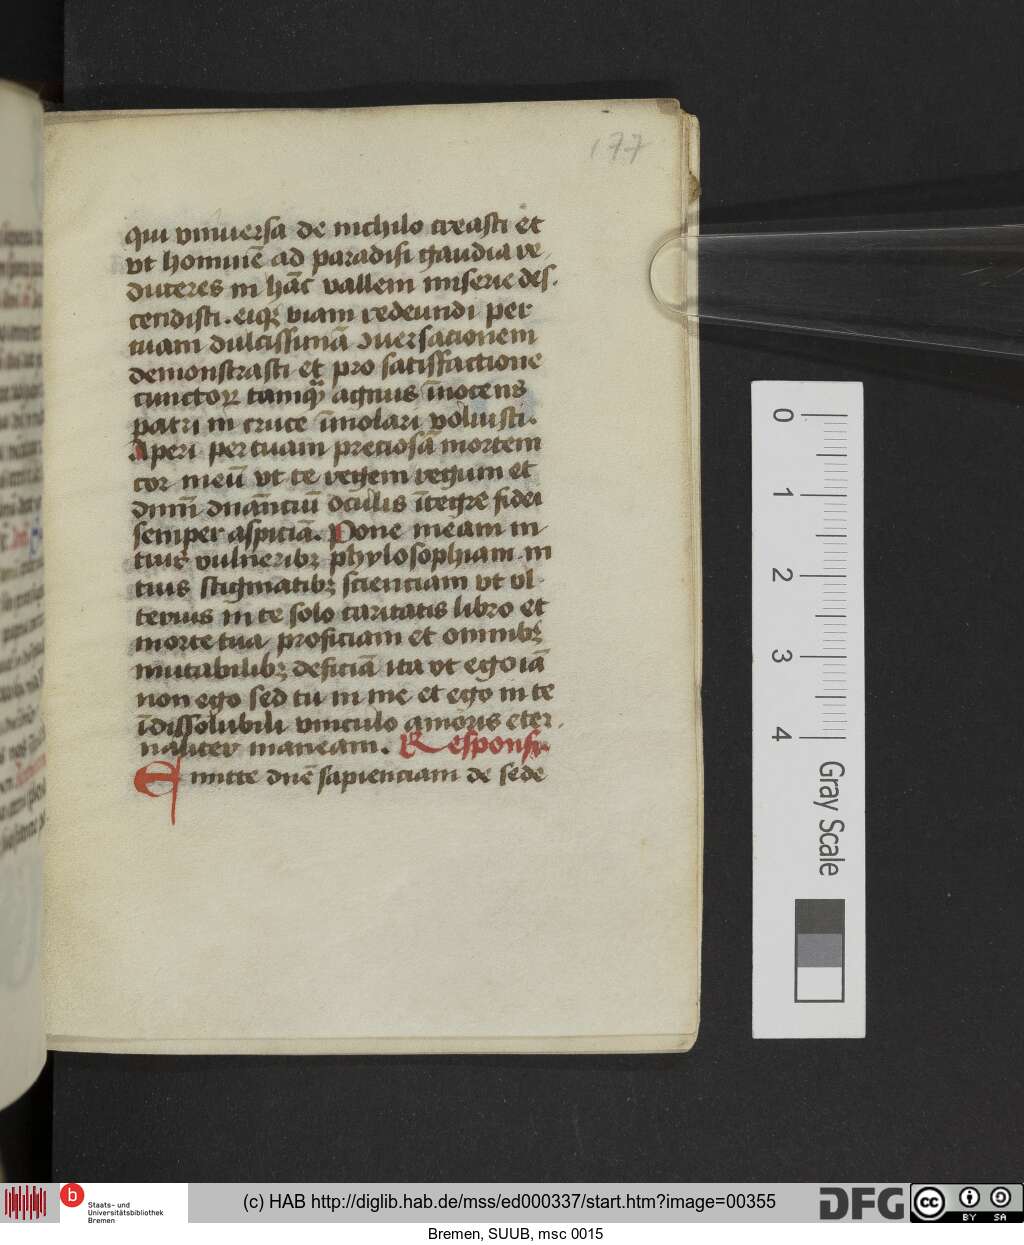 177
qui vniuersa de nichilo creasti et
vt hominē ad paradisi gaudia re
duceres in hāc vallem miserie des
cendisti. eiqꝫ viam redeundi per
tuam dulcissimā ꝯuersacionem
demonstrasti et pro satisfactione
cunctoꝝ tamqͣ agnus īnocens
patri in cruce īmolari voluisti.
Aperi per tuam preciosā mortem
cor meū vt te regem regum et
dn̄m dnānciū oculis ītegre fidei
semper aspiciā. Pone meam in
tuis vulneribꝫ phylosophiam in
tuis stigmatibꝫ scienciam vt vl
terius in te solo caritatis libro et
morte tua proficiam et omnibꝫ
mutabilibꝫ deficiā ita vt ego iā
non ego sed tu in me et ego in te
īdissolubili vinculo amoris eter
naliter maneam. Respons
Emitte dn̄e sapienciam de sede
0
1
2
3
4
Gray Scale
b
Staats- und
Universitätsbibliothek
Bremen
(c) HAB http://diglib.hab.de/mss/ed000337/start.htm?image=00355
DFG
cc BY SA
Bremen, SUUB, msc 0015